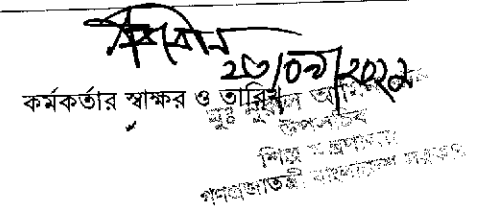 ২৩/০৯/২০২১
কর্মকর্তার স্বাক্ষর ও তারিখ
মুঃ নুরুল আমিন
উপসচিব
শিল্প মন্ত্রণালয়
গণপ্রজাতন্ত্রী বাংলাদেশ সরকার